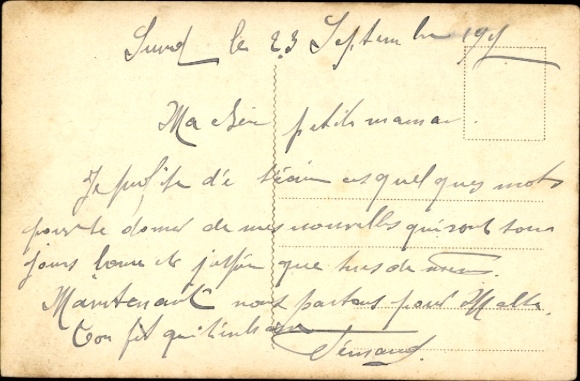 le 23 Septembre 191
Ma chère petite maman.
Je profite d'é quelques mots
pour te donné de mes nouvelles qui sont tou
jours bonne et j'espère que de même.
Maintenant nous partons pour Malte.
Ton fils qui t'embrasse
Fernand.